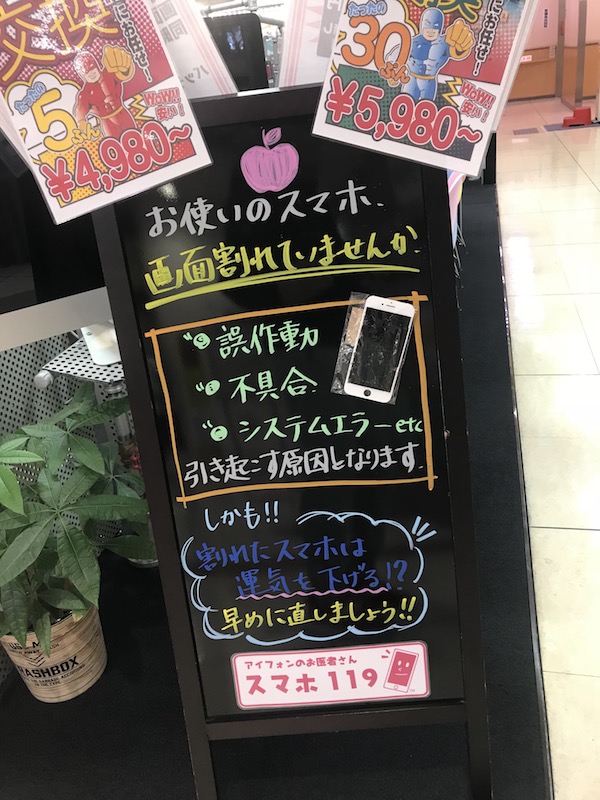 交換
たったの
5ふん
WOW!!
安い!
¥4,980~
換
にお任せ!
たったの
30ぷん
WOW!!
安い!
¥5,980~
お使いのスマホ、
画面割れていませんか
誤作動
不具合
システムエラーetc
引き起こす原因となります。
しかも!!
割れたスマホは
運気を下げる!?
早めに直しましょう!!
アイフォンのお医者さん
スマホ119
ASHBOX